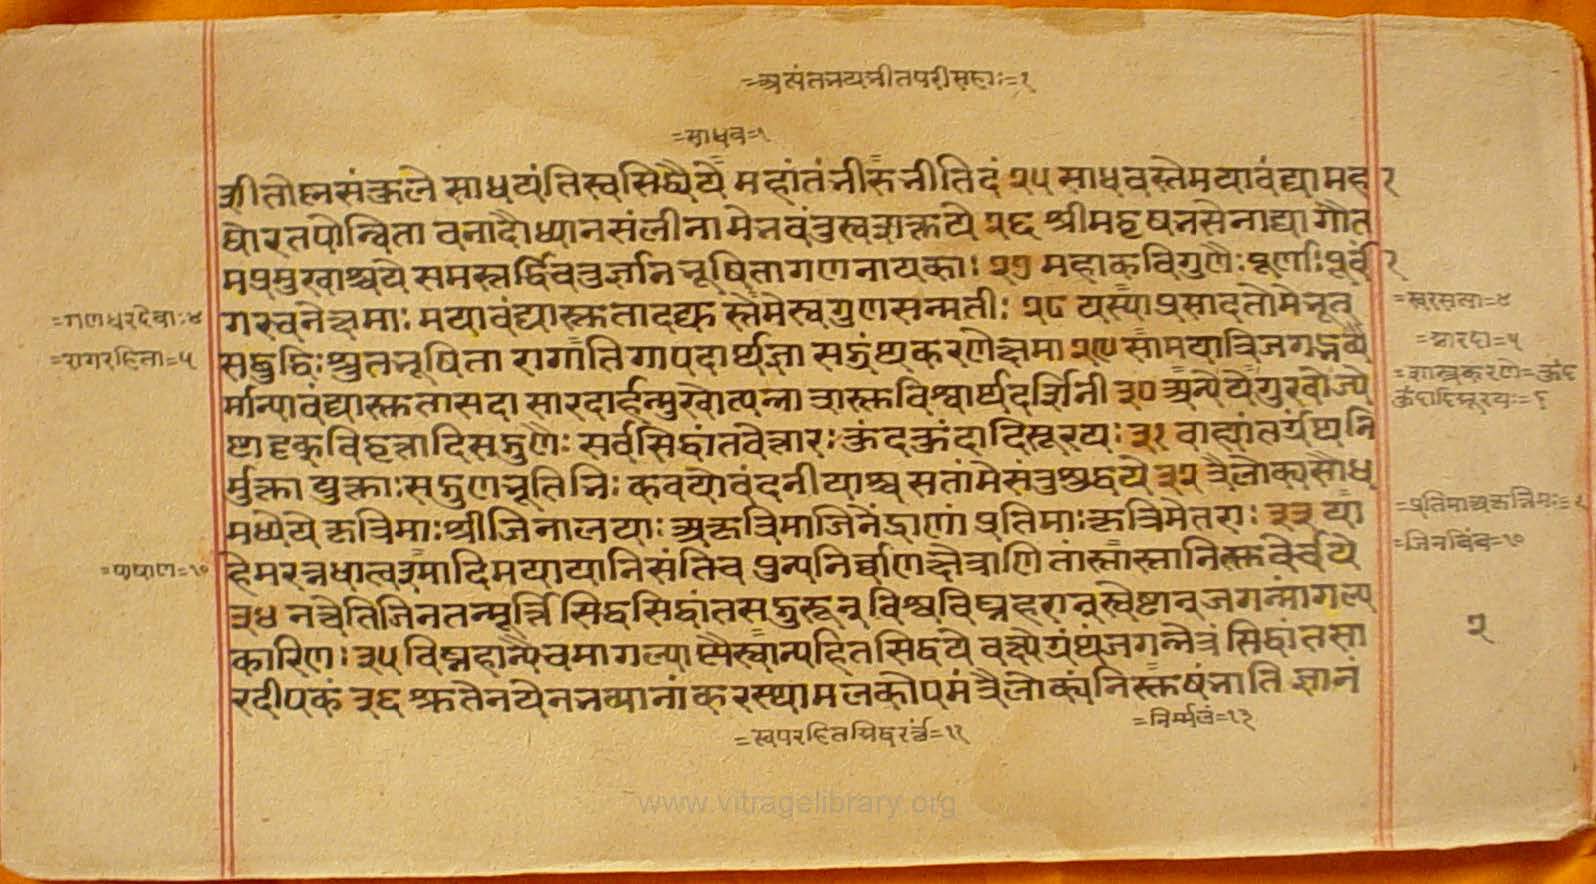 =माधव=१
शीतोष्नसंकुले साधयंतिस्वसिध्यैये महांतंभीरुभीतिदं २५ साधवस्तेमयावंद्यामह
घोरतपोन्विता वनादौध्यानसंलीनामेभवंतुस्वशक्तये २६ श्रीमद्वृषभसेनाद्या गौत
मप्रमुखाश्चये समस्तर्द्धिचतुर्ज्ञानभूषितागणनायकाः २७ महाकविगुणैःपूर्णाःपूर्वां
गरचनेक्षमाः मयावंद्यास्तुता स्वगुणसन्मतीः २८ यस्याप्रसादतोमेभूत्
सद्बुद्धिःश्रुतभूषिता रागातिगापदार्थज्ञा सद्ग्रंथकरणेक्षमा २९ सामयात्रिजगद्भव्यै
र्मान्यावंद्यास्तुतासदा सारदार्हन्मुखोत्पन्ना विश्वार्थदर्शिनी ३० अन्येयेगुरवोज्ये
ष्टादृक्चिद्वृत्तादिसद्गुणैः सर्वसिद्धांतवेत्तारः कुंदकुंदादिसूरयः ३१ वाह्यांतर्ग्रंथनि
र्मुक्ता युक्ताःसद्गुणभूतिभिः कवयोवंदनीयाश्च सतांमेसंतुशुद्धये ३२ त्रैलोक्यसौध
मध्येये कृत्रिमाःश्रीजिनालयाः अकृत्रिमाजिनेंद्राणां प्रतिमाःकृत्रिमेतराः ३३ या
हेमरत्नधात्वश्मादिमयायानिसंतिच पुन्यनिर्वाणक्षेत्राणि तांस्तास्तानिस्तुवेर्चये
३४ नत्वेतिजिनतन्मूर्त्ति सिद्धसिद्धांतसद्गुरून् विश्वविघ्नहरान्स्वेष्टान् जगन्मांगल्य
कारिणः ३५ विघ्नहान्यैचमागल्या हितसिद्धये वक्ष्येग्रंथंजगन्नेत्रं सिद्धांतसा
रदीपकं ३६ श्रुतेनयेनभव्यानां करस्थामलकोपमं त्रैलोक्यंनिस्तुषंभाति ज्ञानं
=गणधरदेवाः=४
=रागरहिता=५
=पाषाण=१०
=सारदा=५
=जिनबिंब=१०
२
=निर्मलं=१२
www.vitragelibrary.org